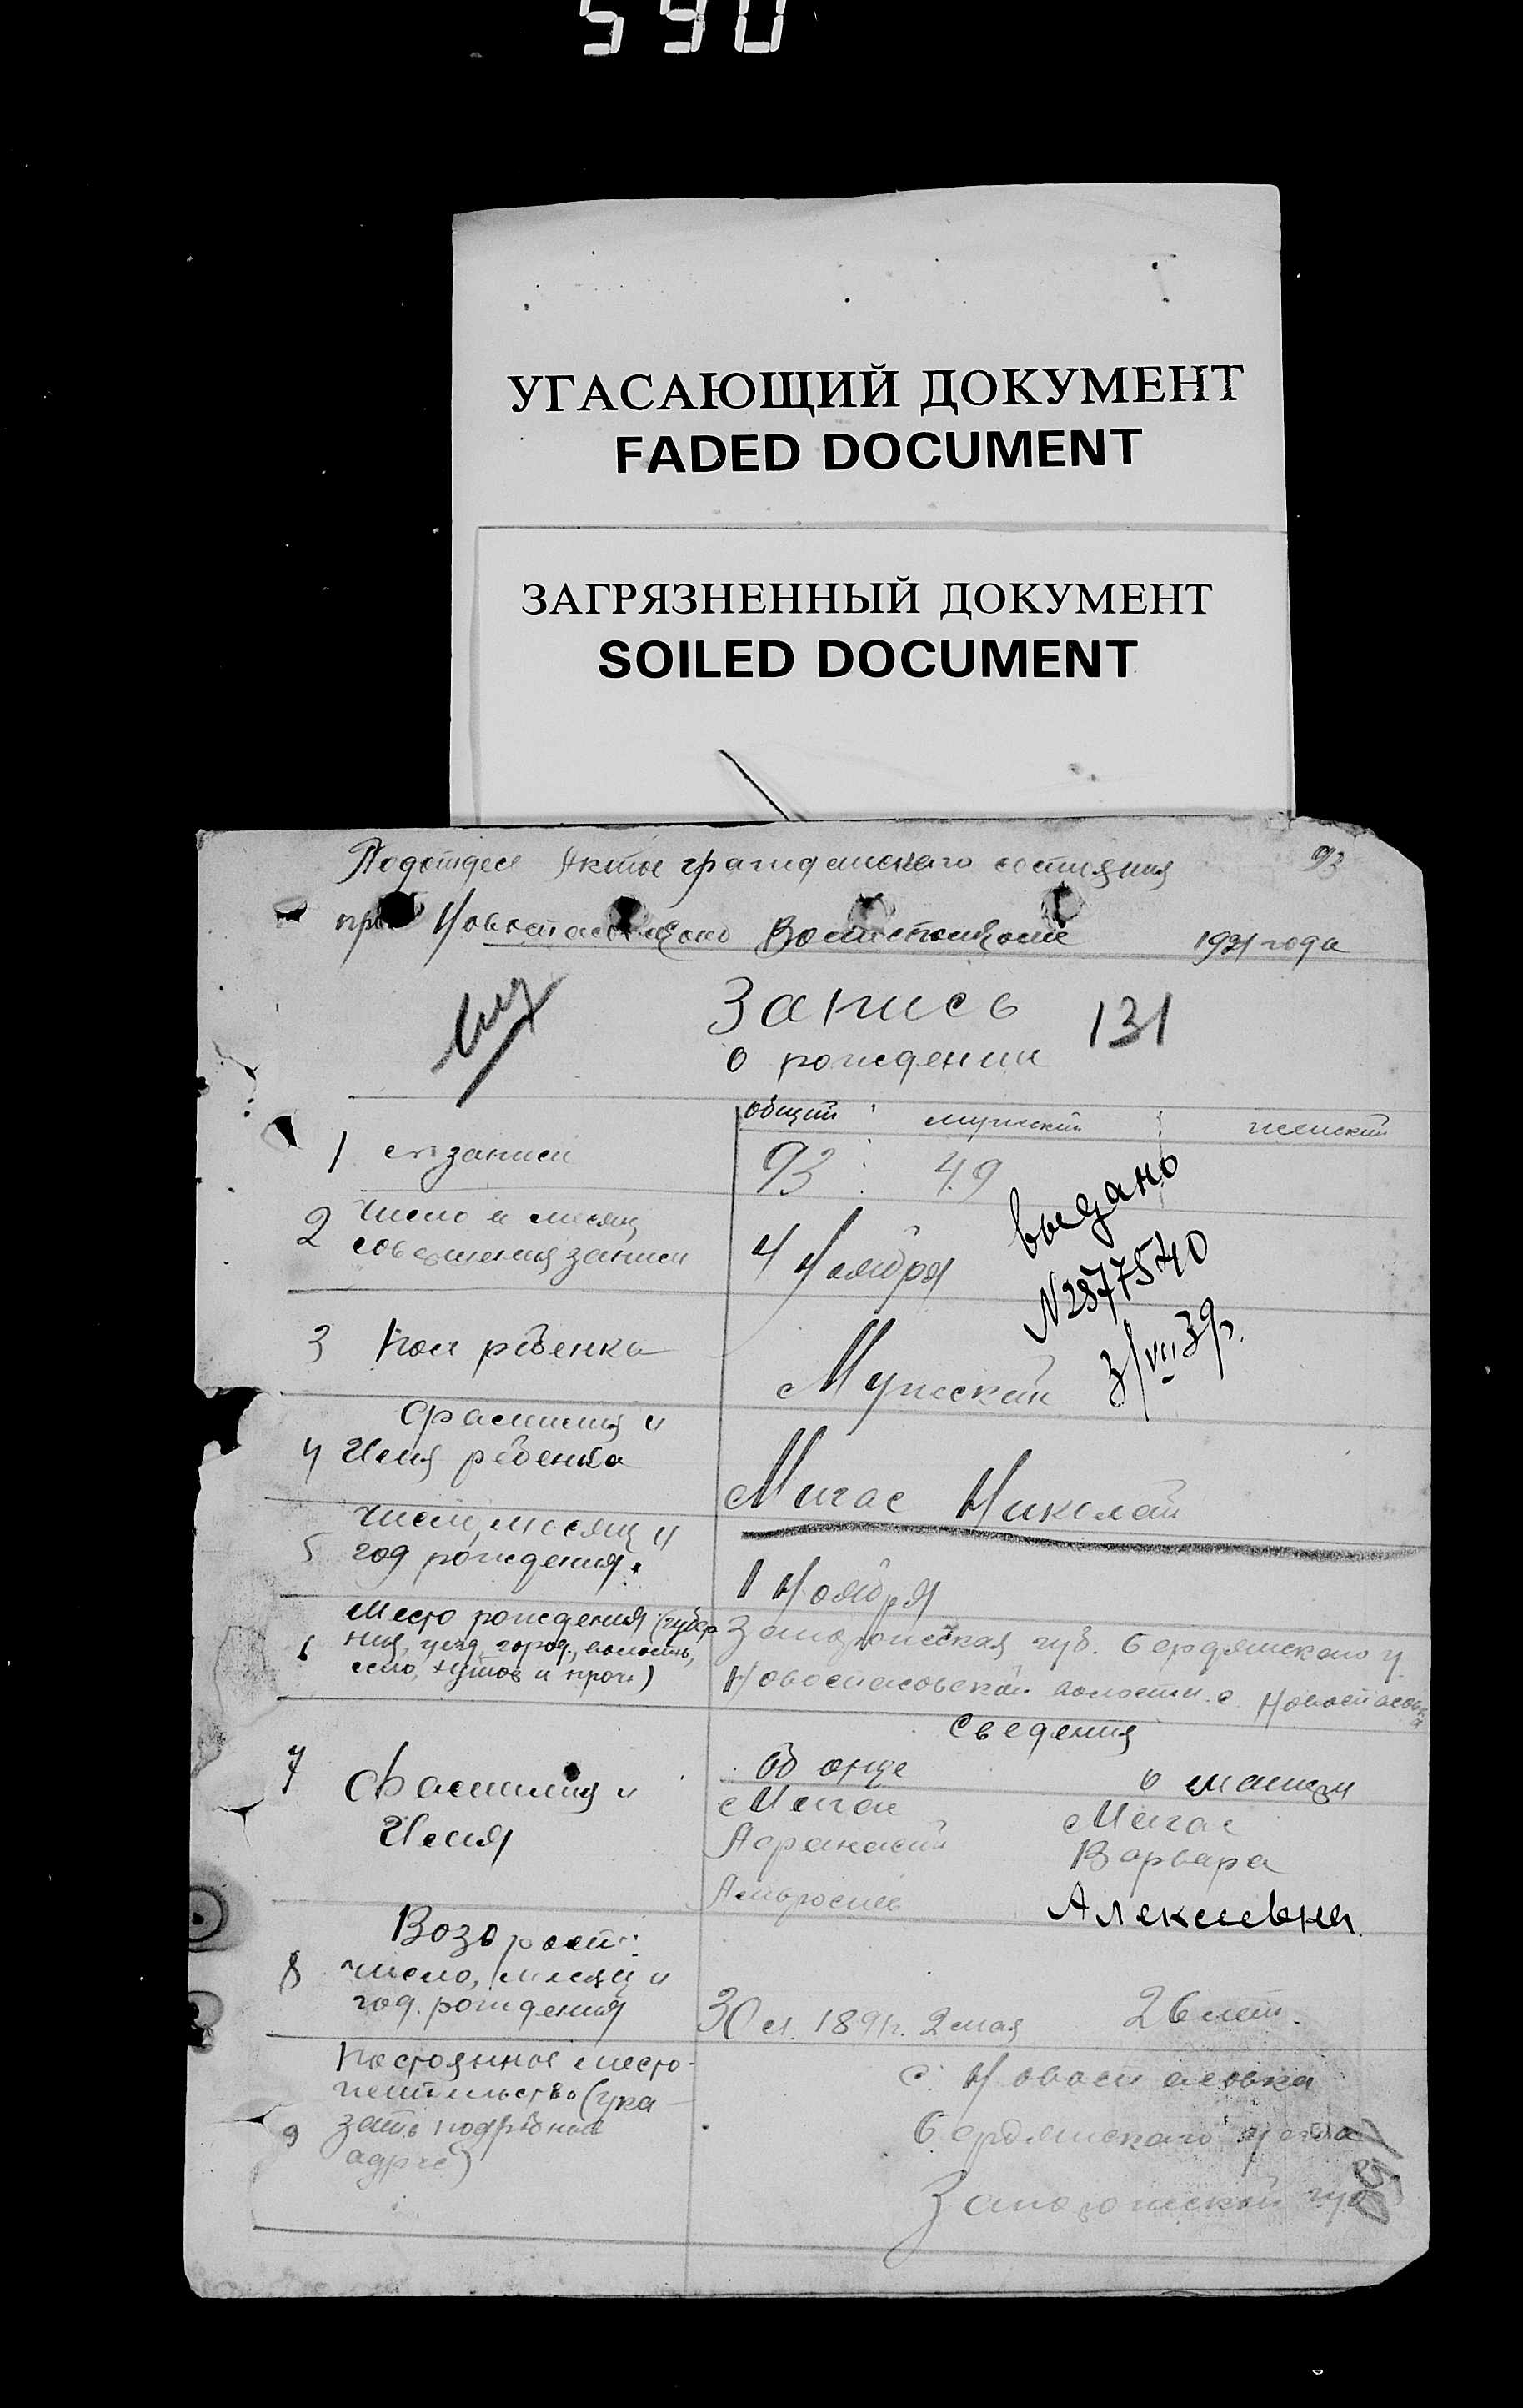 590
УГАСАЮЩИЙ ДОКУМЕНТ
FADED DOCUMENT
ЗАГРЯЗНЕННЫЙ ДОКУМЕНТ
SOILED DOCUMENT
Подотдел Актов гражданского состояния 93
при Новоспасовском Волисполкоме 1921 года
Запись 131
о рождении
общий мужской женский
1 № записи 93 49
выдано
2 Число и месяц
совершения записи 4 Ноября
N2877540
3/VII 39г.
3 Пол ребенка Мужской
Фамилия и
4 Имя ребенка Мигас Николай
Число, месяц и
5 год рождения. 1 Ноября
Место рождения (губер
6 ния, уезд, город, волость,
село, хутор и проч.)
Запорожская губ. Бердянского у
Новоспасовской волости с. Новоспасовка
Сведения
об отце о матери
7 Фамилия и
Имя
Мигас Мигас
Афанасий Варвара
Амвросиев Алексеевна.
Возраст:
8 число, месяц и
год. рождения 30 л. 1891г. 2 мая 26 лет.
Постоянное место-
жительство (ука-
9 зать подробный
адрес)
с. Новоспасовка
Бердянского уезда
Запорожской губ